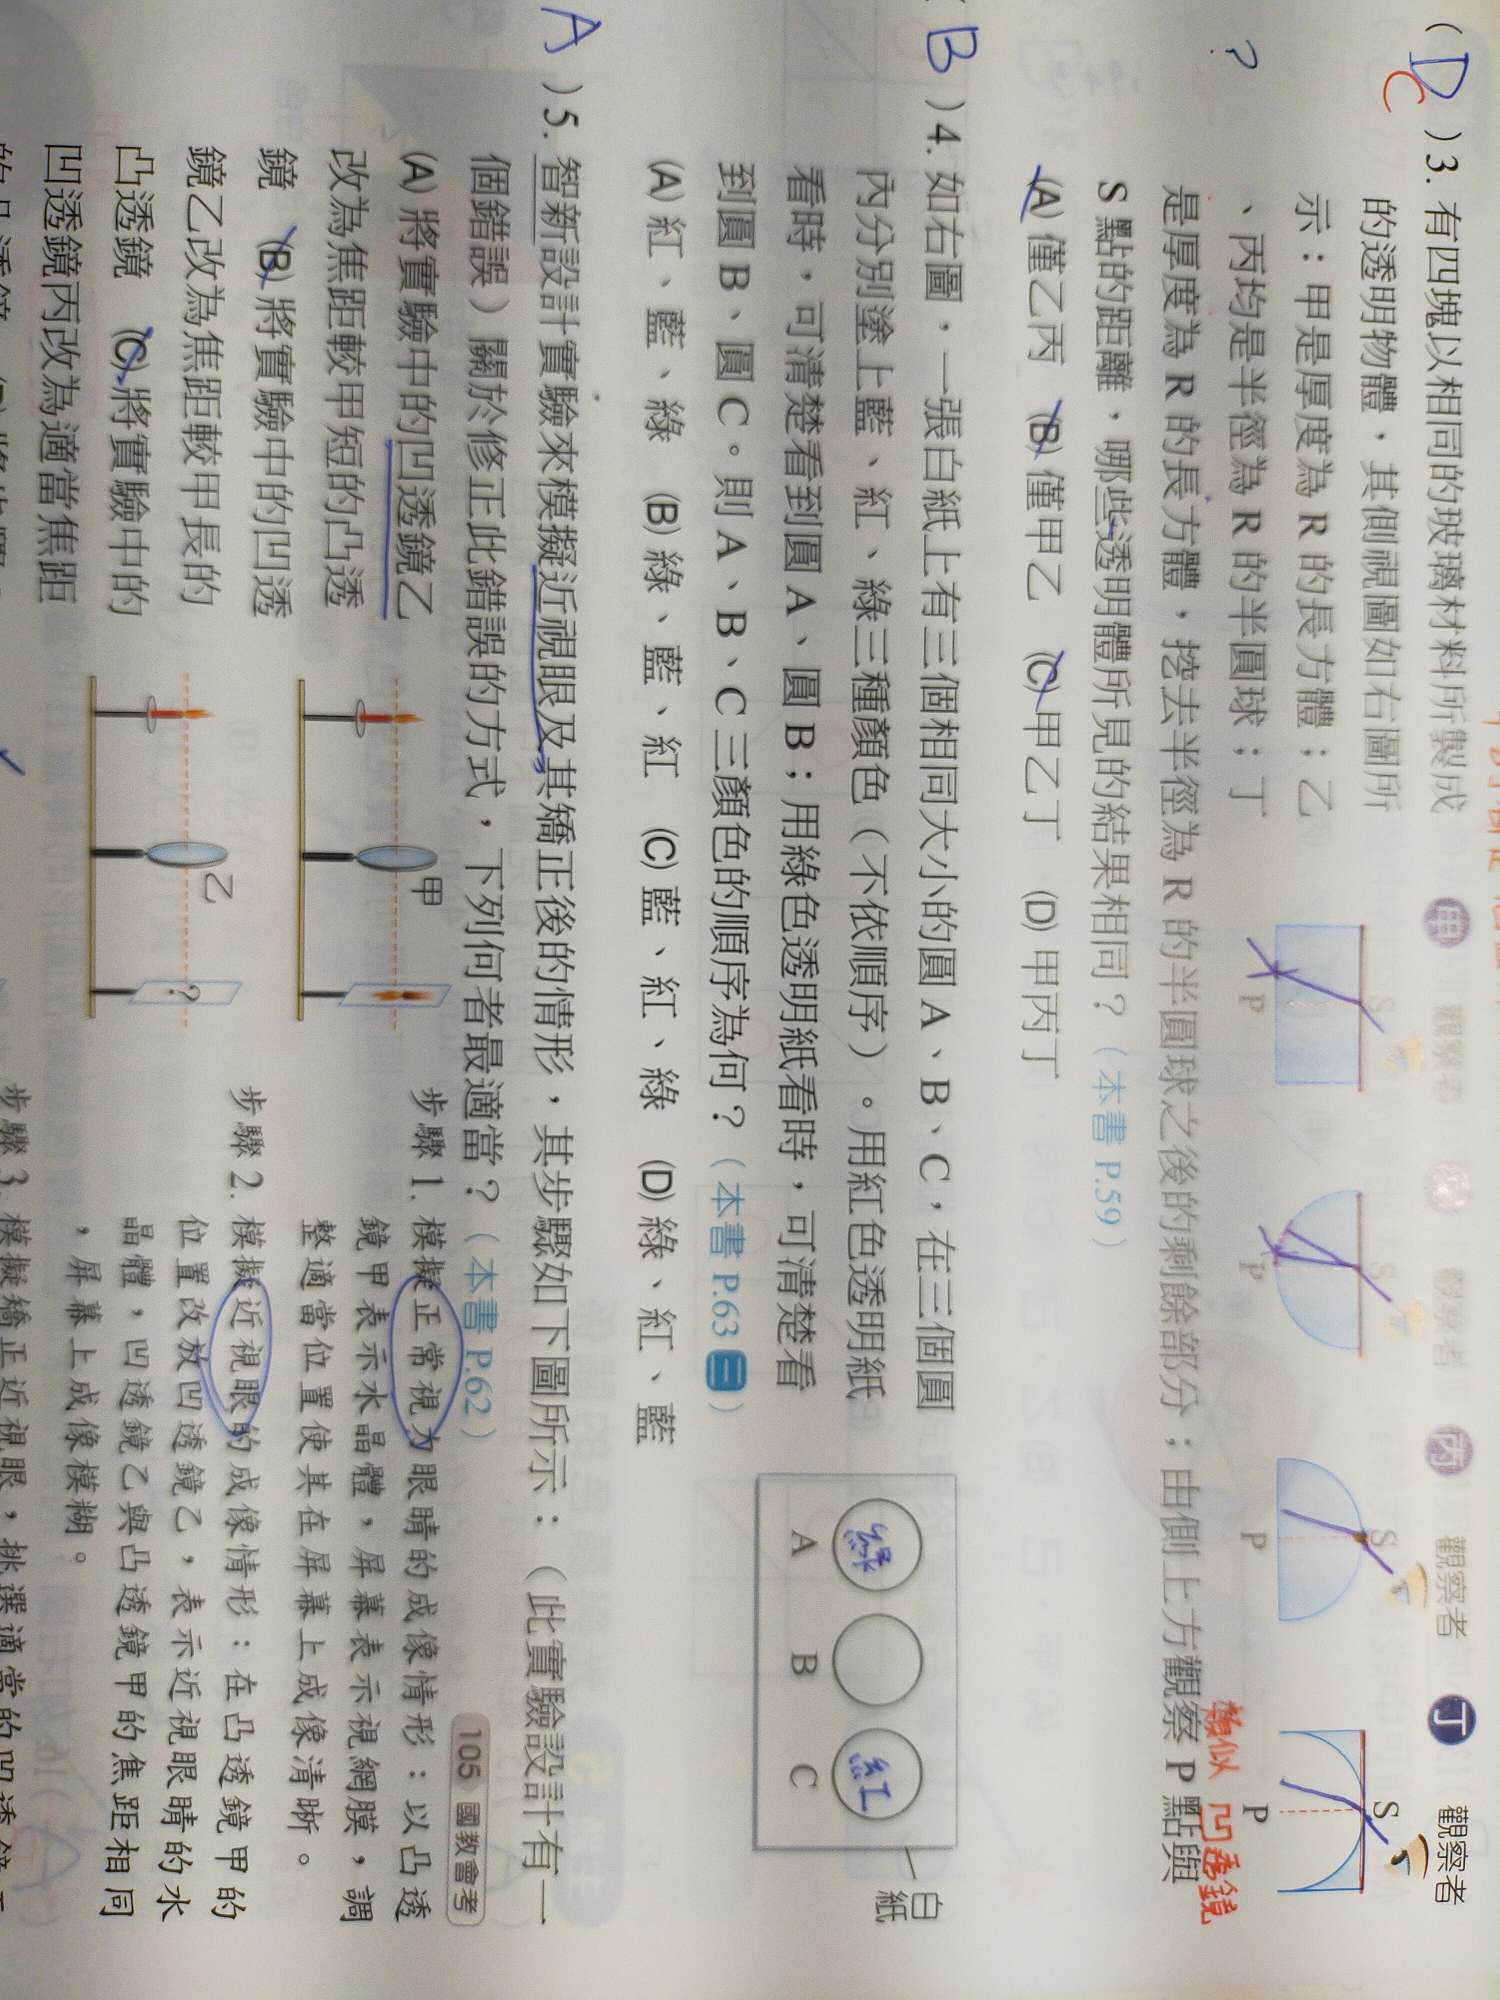 (DC)3. 有四塊以相同的玻璃材料所製成
的透明物體，其側視圖如右圖所
示：甲是厚度為 R 的長方體；乙
、丙均是半徑為 R 的半圓球；丁
是厚度為 R 的長方體，挖去半徑為 R 的半圓球之後的剩餘部分；由側上方觀察 P 點與
S 點的距離，哪些透明體所見的結果相同？（本書 P.59）
(A) 僅乙丙 (B) 僅甲乙 (C) 甲乙丁 (D) 甲丙丁
?
甲 觀察者 乙 觀察者 丙 觀察者 丁 觀察者
S S S S
P P P P
類似 凹透鏡
B )4. 如右圖，一張白紙上有三個相同大小的圓 A、B、C，在三個圓
內分別塗上藍、紅、綠三種顏色（不依順序）。用紅色透明紙
看時，可清楚看到圓 A、圓 B；用綠色透明紙看時，可清楚看
到圓 B、圓 C。則 A、B、C 三顏色的順序為何？（本書 P.63 二）
(A) 紅、藍、綠 (B) 綠、藍、紅 (C) 藍、紅、綠 (D) 綠、紅、藍
綠 紅
A B C
白紙
A )5. 智新設計實驗來模擬近視眼及其矯正後的情形，其步驟如下圖所示：（此實驗設計有一
個錯誤）關於修正此錯誤的方式，下列何者最適當？（本書 P.62）
105 國教會考
(A) 將實驗中的凹透鏡乙
改為焦距較甲短的凸透
鏡 (B) 將實驗中的凹透
鏡乙改為焦距較甲長的
凸透鏡 (C) 將實驗中的
凹透鏡丙改為適當焦距
甲
乙
?
步驟 1. 模擬正常視力眼睛的成像情形：以凸透
鏡甲表示水晶體，屏幕表示視網膜，調
整適當位置使其在屏幕上成像清晰。
步驟 2. 模擬近視眼的成像情形：在凸透鏡甲的
位置改放凹透鏡乙，表示近視眼睛的水
晶體，凹透鏡乙與凸透鏡甲的焦距相同
，屏幕上成像模糊。
步驟 3. 模擬矯正近視眼，挑選適當的凹透鏡